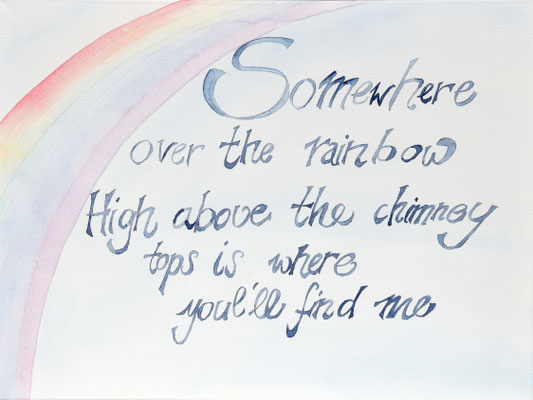 Somewhere
over the rainbow
High above the chimney
tops is where
youl'll find me